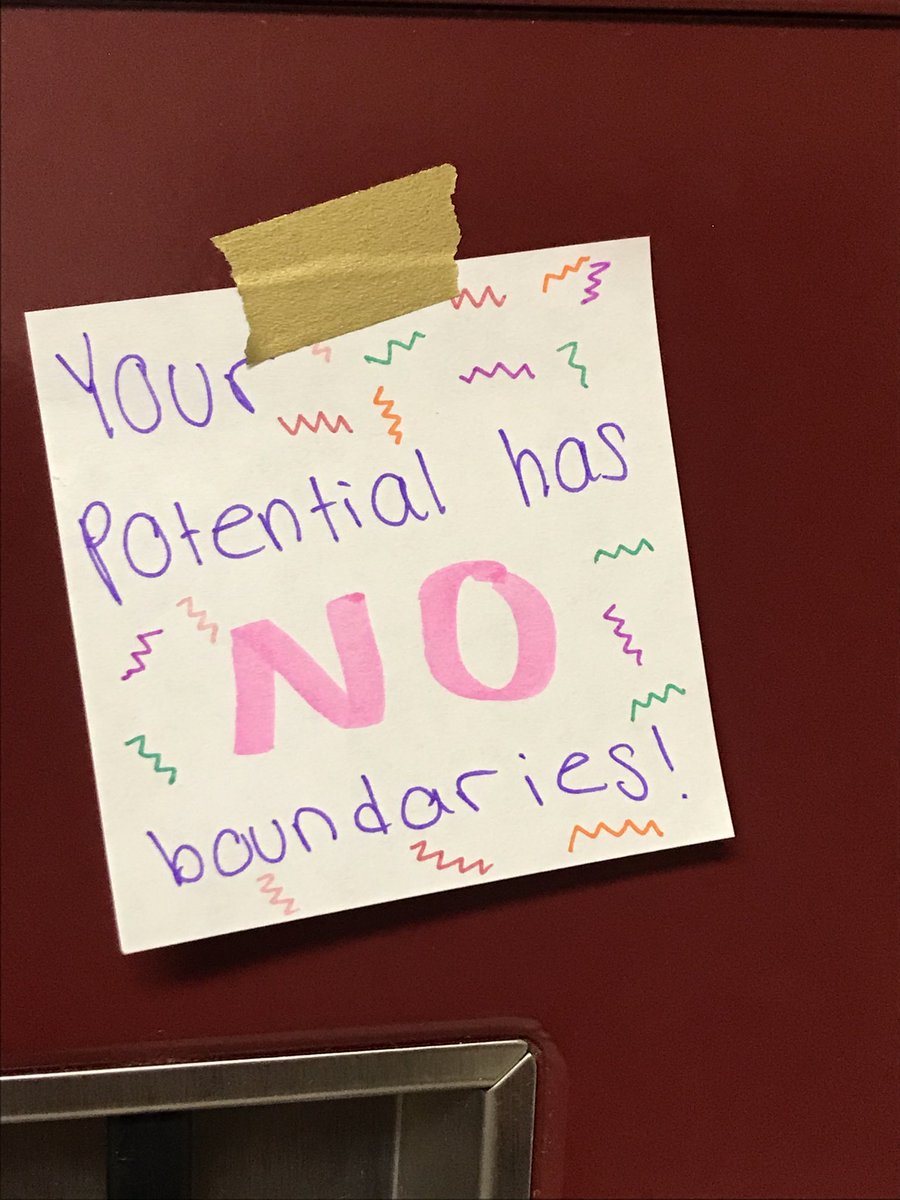 Your
Potential has
NO
boundaries!